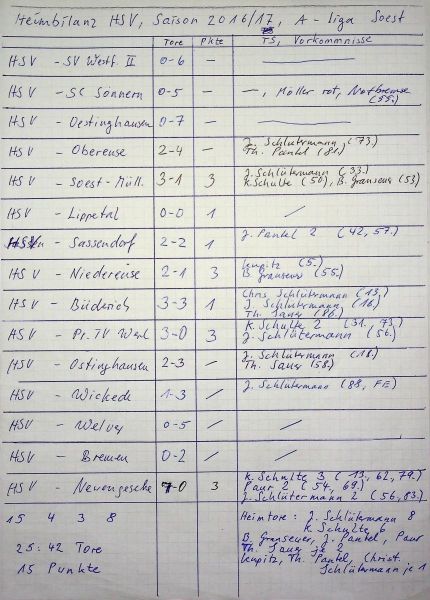 Heimbilanz HSV, Saison 2016/17, A-Liga Soest
Tore Pkte TS, Vorkommnisse
HSV - SV Westf. II 0-6 —
HSV - SC Sönnern 0-5 — —, Möller rot, Notbremse (55.)
HSV - Oestinghausen 0-7 —
HSV - Oberense 2-4 — J. Schlütermann (73.)
Th. Pantel (81.)
HSV - Soest-Müll. 3-1 3 J. Schlütermann (33.)
K. Schulte (50), B. Granseuer (53)
HSV - Lippetal 0-0 1 /
HSV - Sassendorf 2-2 1 J. Pantel 2 (42, 57.)
HSV - Niederense 2-1 3 Kupitz (5.)
B. Granseuer (55.)
HSV - Büderich 3-3 1 Chris Schlütermann (13.,
J. Schlütermann (16.)
Th. Saug (86.)
HSV Pr. TV Werl 3-0 3 K. Schulte 2 (31. 73.)
J. Schlütermann (56.)
HSV Ostinghausen 2-3 / J. Schlütermann (18.)
Th. Saug (58.)
HSV - Wickede 1-3 / J. Schlütermann (88, FE)
HSV - Welver 0-5 / /
HSV - Bremen 0-2 / /
HSV - Neuengeseke 7-0 3 K. Schulte 3 (13, 62, 79.)
Paur 2 (54, 69.)
J. Schlütermann 2 (56, 83.)
15 4 3 8 Heimtore: J. Schlütermann 8
K. Schulte 6
25:42 Tore B. Granseuer, J. Pantel, Paur
Th. Saug je 2
15 Punkte Kupitz, Th. Pantel, Christ.
Schlütermann je 1